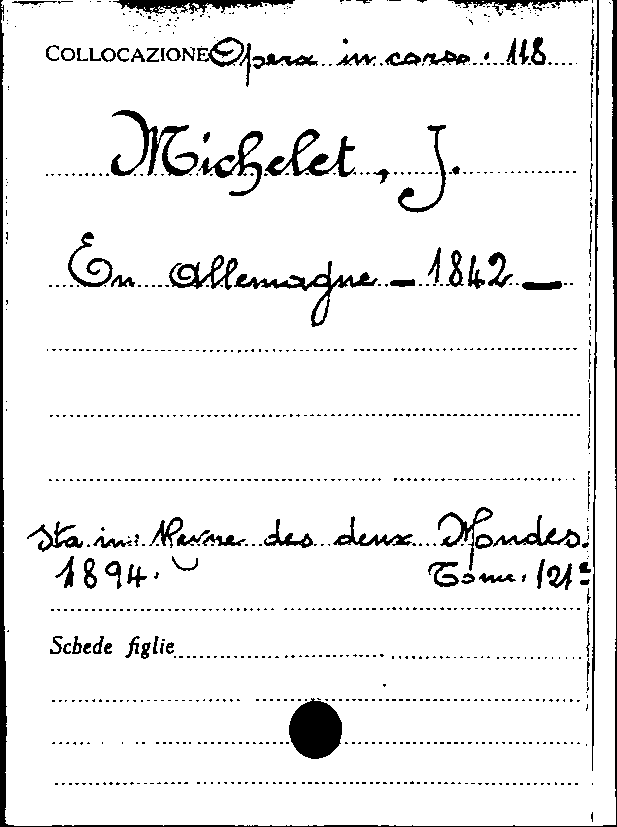 COLLOCAZIONE Opera in corso. 118
Michelet, J.
En Allemagne – 1842 –
Sta in: Revue des deux Mondes.
1894. Tome. 121º
Schede figlie